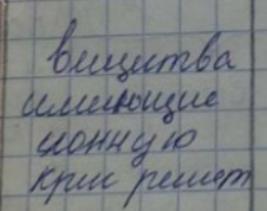 вещества
имеющие
ионную
крис решет